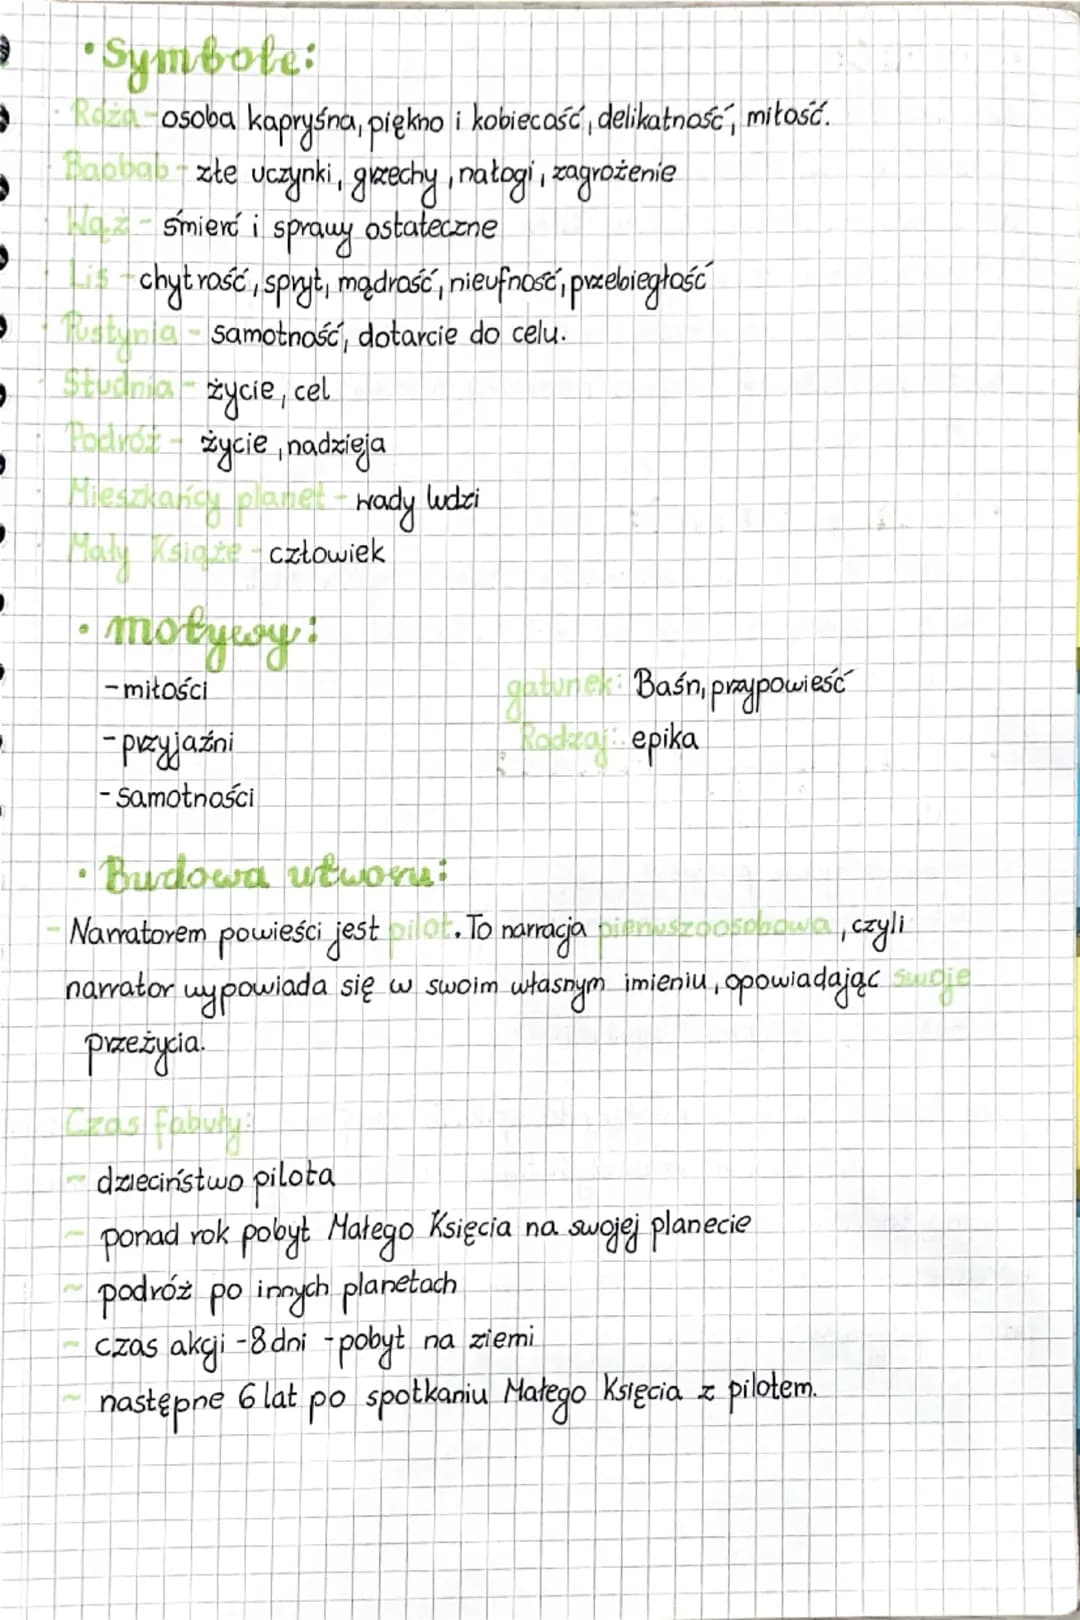 • Symbole:
Róża - osoba kapryśna, piękno i kobiecość, delikatność, miłość.
Baobab - złe uczynki, grzechy, nałogi, zagrożenie
Wąż - śmierć i sprawy ostateczne
Lis - chytrość, spryt, mądrość, nieufność, przebiegłość
Pustynia - samotność, dotarcie do celu.
Studnia - życie, cel
Podróż - życie, nadzieja
Mieszkańcy planet - wady ludzi
Mały Książe - człowiek
• motywy:
- miłości
gatunek: Baśń, przypowieść
- przyjaźni
Rodzaj: epika
- samotności
• Budowa utworu:
- Narratorem powieści jest pilot. To narracja pierwszoosobowa, czyli
narrator wypowiada się w swoim własnym imieniu, opowiadając swoje
przeżycia.
Czas fabuły:
~ dzieciństwo pilota
~ ponad rok pobyt Małego Księcia na swojej planecie
~ podróż po innych planetach
~ czas akcji - 8 dni - pobyt na ziemi
~ następne 6 lat po spotkaniu Małego Księcia z pilotem.